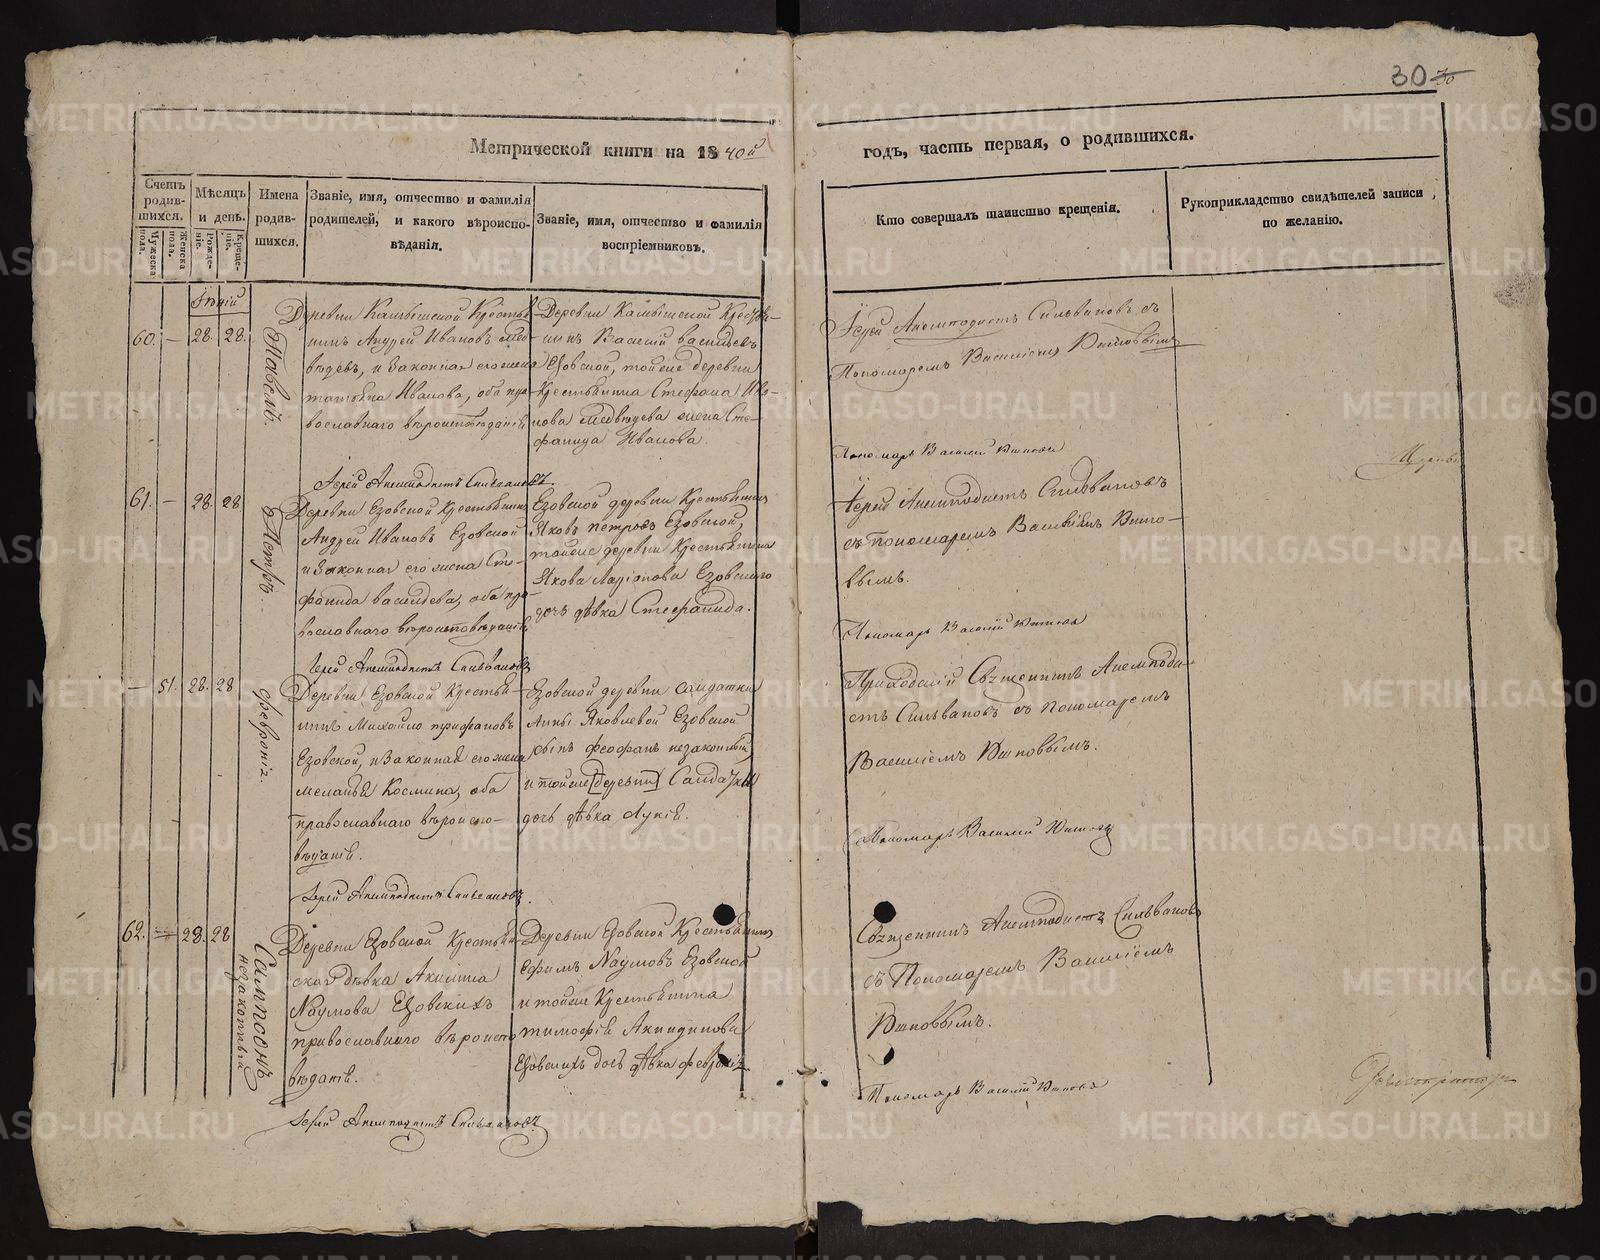 30 30
Метрической книги на 1840й
годъ, часть первая, о родившихся.
Счетъ родив-
шихся.
Мужеска пола.
Женска пола.
Мѣсяцъ
и день.
Рожде-
ніе.
Креще-
ніе.
Имена
родив-
шихся.
Званіе, имя, отчество и фамилія
родителей, и какого вѣроиспо-
вѣданія.
Званіе, имя, отчество и фамилія
воспріемниковъ.
Кто совершалъ таинство крещенія.
Рукоприкладство свидѣтелей записи
по желанію.
Іюній
60. — 28. 28.
Павелъ.
Деревни Камышской Крестья-
нинъ Андрей Ивановъ Мед-
вѣдевъ, и законная его жена
Татьяна Иванова, оба пра-
вославнаго вѣроисповѣданія
Деревни Камышской Кресть-
нинъ Василій Васильевъ
Езовской, тойже деревни
Крестьянина Стефана Ива-
нова Медвѣдева жена Сте-
фанида Иванова.
Іерей Анемподистъ Сильвановъ съ
Пономаремъ Василіемъ
Пономарь Василій
Іерей Анемподистъ Сильвановъ.
61. — 28. 28
Петръ.
Деревни Езовской Крестьянинъ
Андрей Ивановъ Езовской
и законная его жена Сте-
фанида Васильева, оба пра-
вославнаго вѣроисповѣданія
Езовской деревни Крестьянинъ
Яковъ Петровъ Езовской,
тойже деревни Крестьянина
Якова Ларіонова Езовскаго
дочь дѣвка Стефанида.
Іерей Анемподистъ Сильвановъ
съ Пономаремъ Василіемъ
вымъ.
Пономарь Василій
Іерей Анемподистъ Сильвановъ
— 51. 28. 28
Февронія.
Деревни Езовской Крестья-
нинъ Михайло Трифановъ
Езовской, и законная его жена
Меланья Космина, оба
православнаго вѣроиспо-
вѣданія.
Езовской деревни солдатки
Анны Яковлевой Езовской
сынъ Феофанъ незаконный
и тойже [деревни] Солдатки
дочь дѣвка Лукія.
Приходскій Священникъ Анемподи-
стъ Сильвановъ съ Пономаремъ
Василіемъ
Пономарь Василій
Іерей Анемподистъ Сильвановъ.
62. — 28. 28
Сампсонъ
незаконный
Деревни Езовской Крестьян-
ская дѣвка Акилина
Наумова Езовскихъ
православнаго вѣроиспо-
вѣданія.
Деревни Езовской Крестьянинъ
Ефимъ Наумовъ Езовской
и тойже Крестьянина
Тимофея Акиндинова
Езовскихъ дочь дѣвка Февронія.
Священникъ Анемподистъ Сильвановъ
съ Пономаремъ Василіемъ
Пономарь Василій
Іерей Анемподистъ Сильвановъ